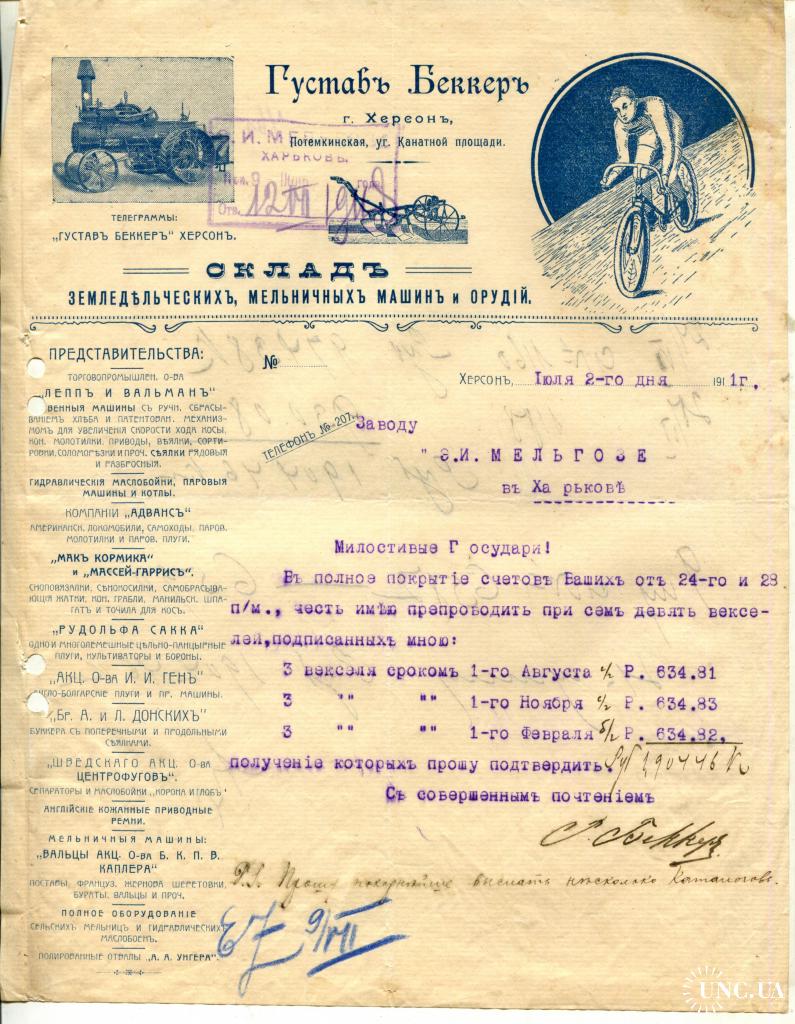 Густавъ Беккеръ
г. Херсонъ,
Потемкинская, уг. Канатной площади.
Э. И. МЕ
ХАРЬКОВЪ.
Отв. 12 VII
ТЕЛЕГРАММЫ:
„ГУСТАВЪ БЕККЕРЪ" ХЕРСОНЪ.
СКЛАДЪ
ЗЕМЛЕДѢЛЬЧЕСКИХЪ, МЕЛЬНИЧНЫХЪ МАШИНЪ и ОРУДІЙ.
№
ХЕРСОНЪ, Іюля 2-го дня 1911г,
ТЕЛЕФОНЪ № 207.
Заводу
"Э.И. МЕЛЬГОЗЕ
въ Ха рьковѣ
Милостивые Г осудари!
Въ полное покрытіе счетовъ Вашихъ отъ 24-го и 28
п/м., честь имѣю препроводить при семъ девять вексе-
лей,подписанныхъ мною:
3 векселя срокомъ 1-го Августа с/г Р. 634.81
3 "" "" 1-го Ноября с/г Р. 634.83
3 "" "" 1-го Февраля б/г Р. 634.82,
полученіе которыхъ прошу подтвердить.
Руб 190446 К
Съ совершеннымъ почтеніемъ
Г. Беккеръ
P.S. Прошу выслать нѣсколько каталоговъ.
9/VII
ПРЕДСТАВИТЕЛЬСТВА:
ТОРГОВОПРОМЫШЛЕН. О-ВА
„ЛЕППЪ И ВАЛЬМАНЪ"
ВЕННЫЯ МАШИНЫ СЪ РУЧН. СБРАСЫ-
ВАНІЕМЪ ХЛѢБА И ПАТЕНТОВАН. МЕХАНИЗ-
МОМЪ ДЛЯ УВЕЛИЧЕНІЯ СКОРОСТИ ХОДА КОСЫ,
КОН. МОЛОТИЛКИ, ПРИВОДЫ, ВѢЯЛКИ, СОРТИ-
РОВКИ,СОЛОМОРѢЗКИ И ПРОЧ. СѢЯЛКИ РЯДОВЫЯ
И РАЗБРОСНЫЯ.
ГИДРАВЛИЧЕСКІЯ МАСЛОБОЙНИ, ПАРОВЫЯ
МАШИНЫ И КОТЛЫ.
КОМПАНІИ „АДВАНСЪ"
АМЕРИКАНСК. ЛОКОМОБИЛИ, САМОХОДЫ, ПАРОВ.
МОЛОТИЛКИ И ПАРОВ. ПЛУГИ.
„МАКЪ КОРМИКА"
И „МАССЕЙ-ГАРРИСЪ".
СНОПОВЯЗАЛКИ, СѢНОКОСИЛКИ, САМОБРАСЫВА-
ЮЩІЯ ЖАТКИ, КОН. ГРАБЛИ, МАНИЛЬСК. ШПА-
ГАТЪ И ТОЧИЛА ДЛЯ КОСЪ.
„РУДОЛЬФА САККА"
ОДНО И МНОГОЛЕМЕШНЫЕ ЦѢЛЬНО-ПАНЦЫРНЫЕ
ПЛУГИ, КУЛЬТИВАТОРЫ И БОРОНЫ.
„АКЦ. О-ВА И. И. ГЕНЪ"
АНГЛО-БОЛГАРСКІЕ ПЛУГИ И ПР. МАШИНЫ.
„БР. А. И Л. ДОНСКИХЪ"
БУККЕРА СЪ ПОПЕРЕЧНЫМИ И ПРОДОЛЬНЫМИ
СѢЯЛКАМИ.
„ШВЕДСКАГО АКЦ. О-ВА
ЦЕНТРОФУГОВЪ".
СЕПАРАТОРЫ И МАСЛОБОЙКИ „КОРОНА И ГЛОБЪ"
АНГЛІЙСКІЕ КОЖАННЫЕ ПРИВОДНЫЕ
РЕМНИ.
МЕЛЬНИЧНЫЯ МАШИНЫ:
„ВАЛЬЦЫ АКЦ. О-ВА Б. К. П. В.
КАПЛЕРА"
ПОСТАВЫ, ФРАНЦУЗ. ЖЕРНОВА ШЕРЕТОВКИ,
БУРАТЫ, ВАЛЬЦЫ И ПРОЧ.
ПОЛНОЕ ОБОРУДОВАНІЕ
СЕЛЬСКИХЪ МЕЛЬНИЦЪ И ГИДРАВЛИЧЕСКИХЪ
МАСЛОБОЕНЪ.
ПОЛИРОВАННЫЕ ОТВАЛЫ „А. А. УНГЕРА".
UNC.UA